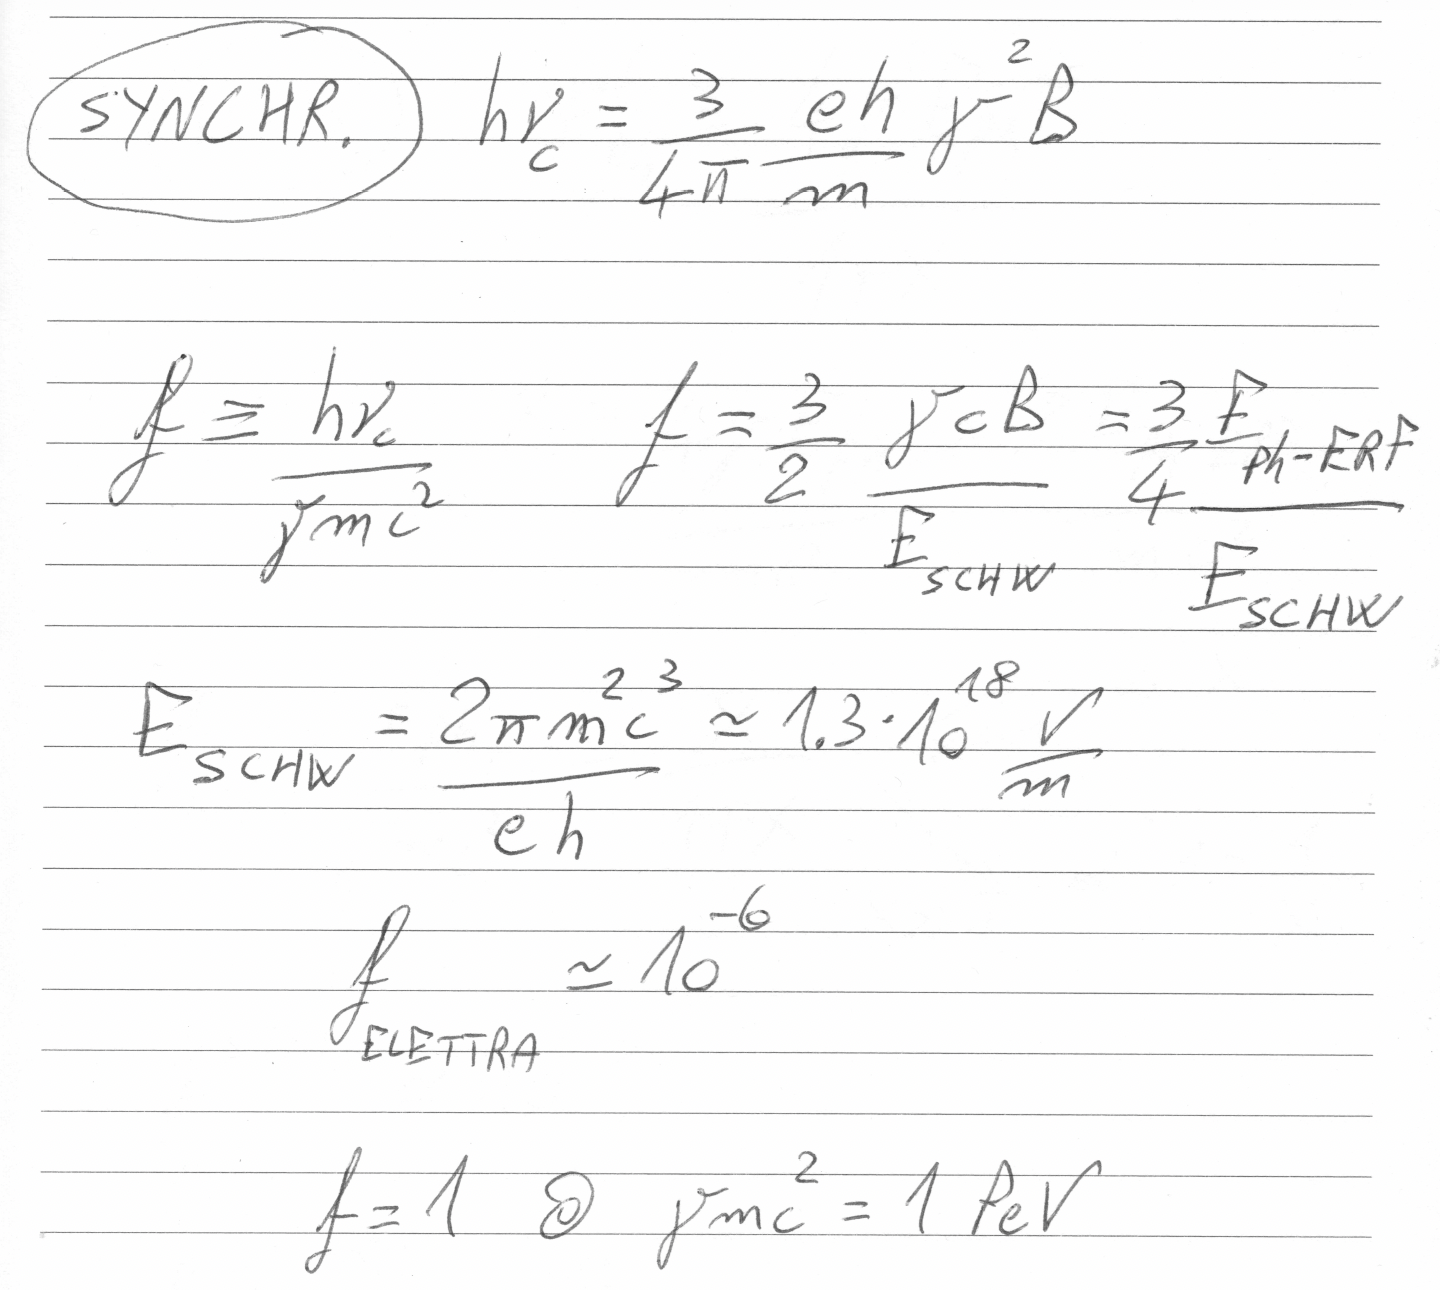 SYNCHR. hν_c = 3/4π eh/m γ² B
f ≡ hν_c/γmc² f = 3/2 γcB/E_SCHW = 3/4 E_ph-ERF/E_SCHW
E_SCHW = 2πm²c³/eh ≃ 1.3·10¹⁸ V/m
f_ELETTRA ≃ 10⁻⁶
f = 1 @ γmc² = 1 PeV